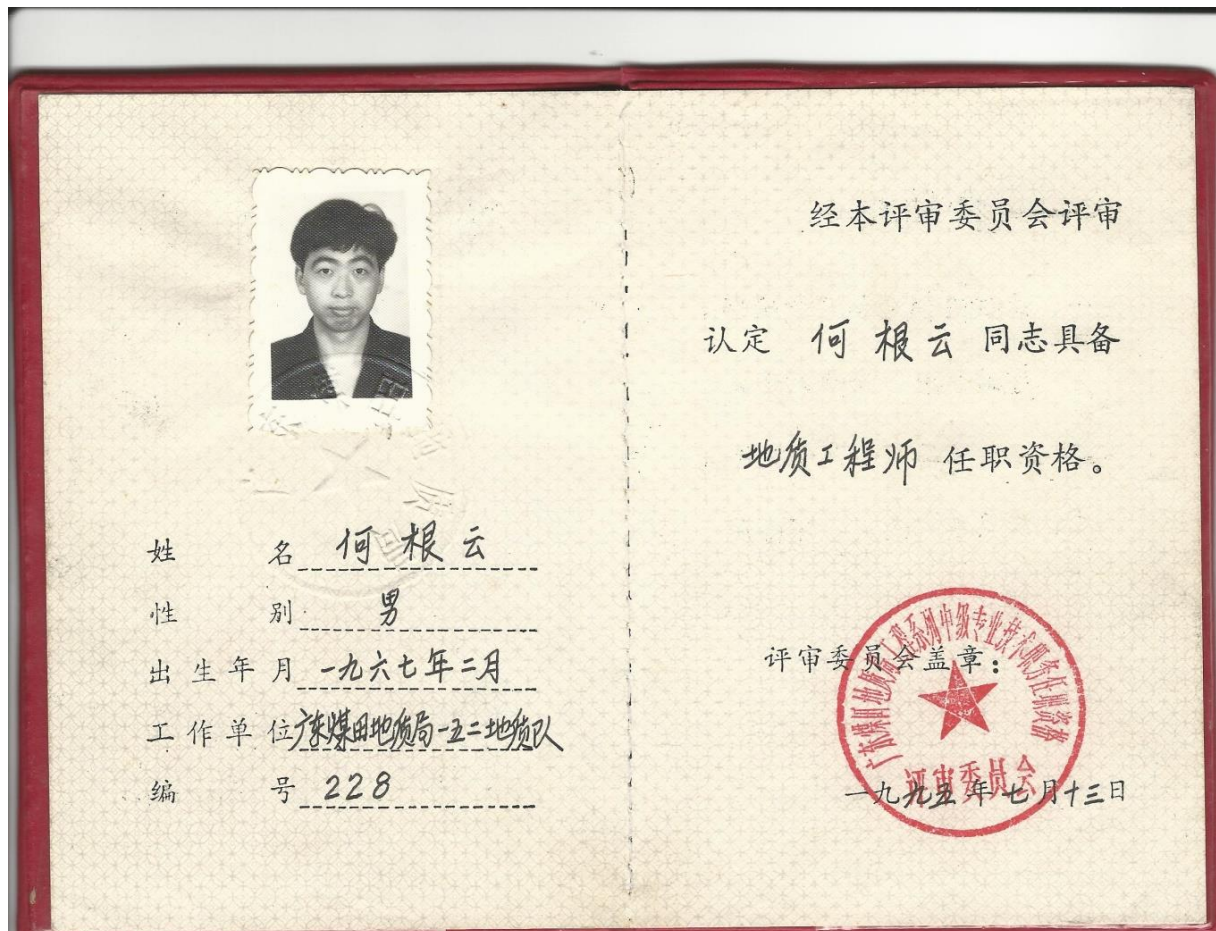 姓名 何根云
性别 男
出生年月 一九六七年二月
工作单位 广东煤田地质局一五二地质队
编号 228
经本评审委员会评审
认定 何根云 同志具备
地质工程师 任职资格。
评审委员会盖章:
广东煤田地质局工程系列中级专业技术职务任职资格
评审委员会
一九九五年七月十三日